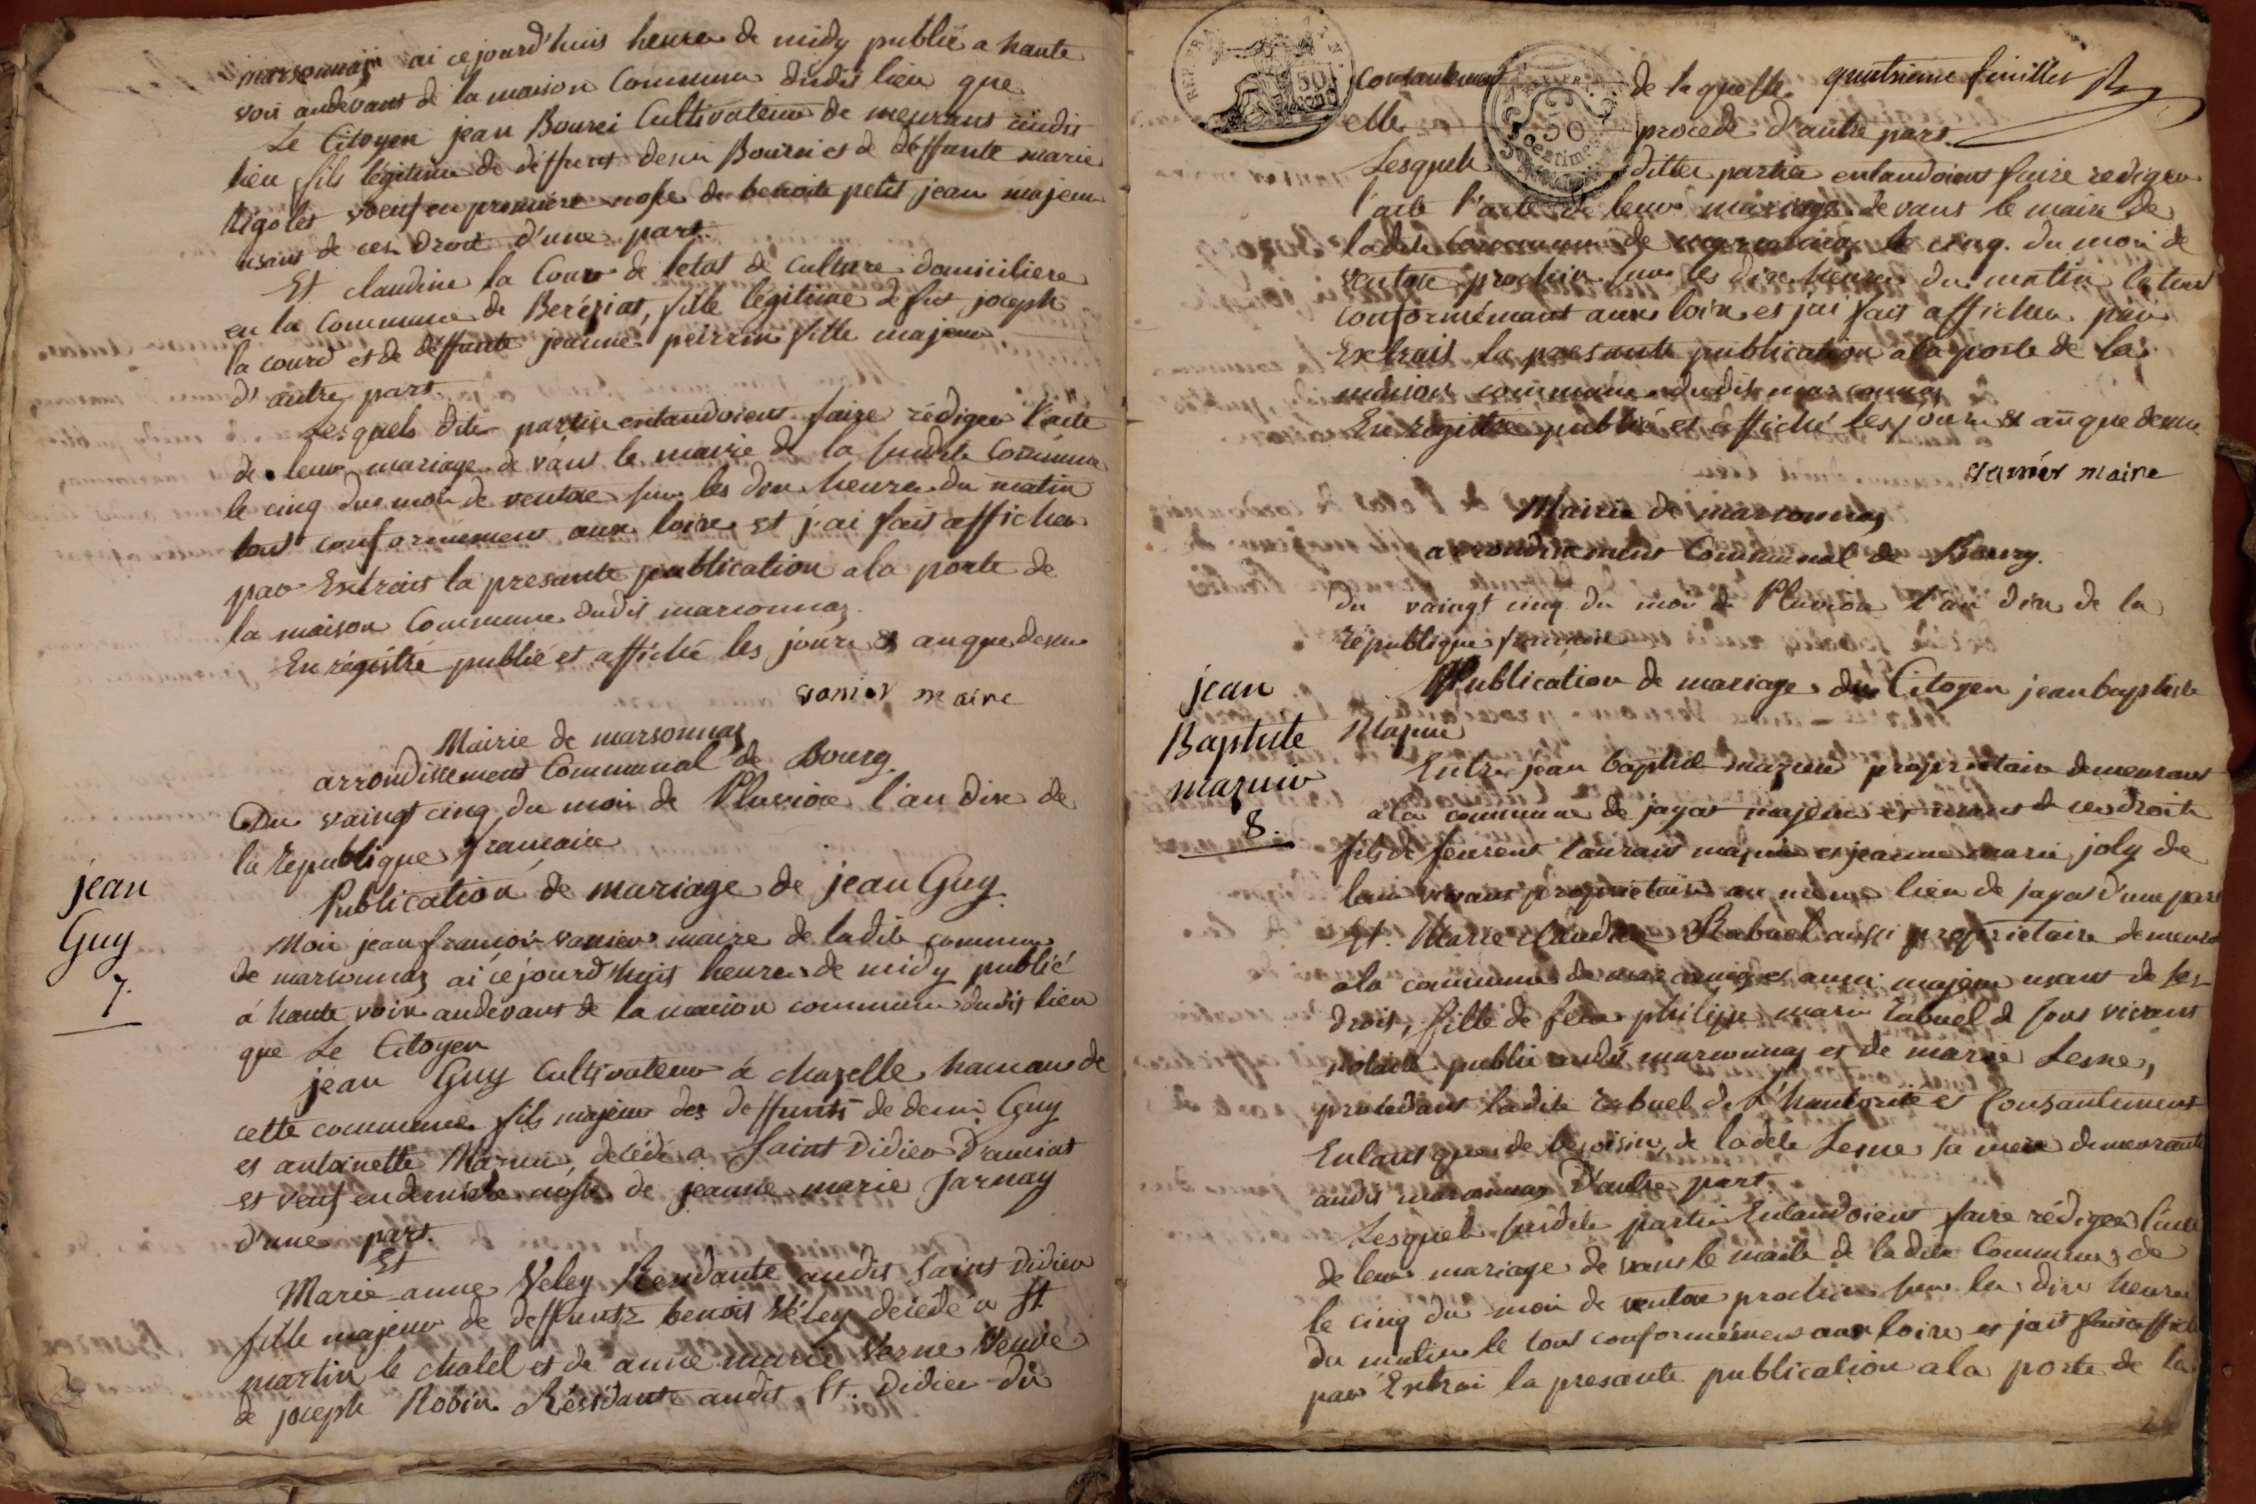 marsonnaz ai cejourd'huis heure de midy publié a haute
voix audevant de la maison Commune dudit lieu que
Le Citoyen jean Bourei Cultivateur de meurans audit
lieu fils légitime de deffunt denis Bourei et de deffante marie
Rigolet voeuf en première nosse de benoite petit jean majeur
usant de ces Droit d'une part.
Et claudine la Cour de letat de culture domiciliere
en la Commune de Berézias, fille légitime de fut joseph
la courd et de deffunte jeanne perrin fille majeur
d'autre part.
Lesquels dite partie entandoient faire rédiger l'acte
de leur mariage devant le mairie de la susdite Commune
le cinq due mois de ventose sur les dix heure du matin
tout conformément aux loix et j'ai fait afficher
par Extrait la presante publication a la porte de
la maison Commune dudit marsonnaz.
Enrégistré publié et affiché les jour & an que dessu
vanier maire
Mairie de marsonnaz
arrondissement Communal de Bourg.
Du vaingt cinq du mois de Pluviose l'an dix de
la République francaise
jean
Guy
7.
Publication de mariage de jean Guy.
Moi jean francois vanier maire de ladite commune
de marsonnaz ai cejourd'huis heure de midy publié
á haute voix audevant de la maison commune dudit lieu
que Le Citoyen
jean Guy Cultivateur á chazelle hamaus de
cette commune fils majeur des deffunts de denis Guy
et antoinette Mazuir, decédé a Saint Didier D'aussiat
et veuf en derniere nosse de jeanne marie Jarnay
d'une part.
Et
Marie anne Veley Residante audit Saint Didier
fille majeur de deffunts benoit Veley decédé a St.
martin le chatel et de anne marie Varne Veuve
de joseph Robin Résidante audit St. Didier du
Consantement de laquelle quatrieme feuillet
elle procede d'autre part.
Lesquels ditte partie entandoient faire rediger
l'acte l'acte de leur mariage devant le maire de
ladite Commune de marsonnaz le cinq du mois de
ventose prochin sur les dix heures du matin le tout
conformémant aux loix et jai fait afficher par
Extrait la presante publication a la porte de la
maison commune dudit marsonnaz
Enregistré publié et affiché les jour & an que dessu
vanier maire
Mairie de marsonnaz
arrondissement Communal de Bourg.
Du vaingt cinq du mois de Pluviose l'an dix de la
République francaise
jean
Baptiste
mazuir
8.
Publication de mariage du Citoyen jean baptiste
Mazuir
Entre jean baptiste mazuir propriétaire demeurant
a la commune de jayat majeur et usant de ces droit
fils de laurant mazuir et jeanne marie joly de
vivant propriétaire au meme lieu de jayat d'une part
Et Marie claudine Rabuel aussi propriétaire demeurant
a la commune de marsonnaz et aussi majeur usant de ses
droit, fille de feu philippe marie rabuel de sont vivant
notaire public audit marsonnaz et de marie Lesne,
procédant ladite rabuel de l'hautorité et Consantement
Entant que de besoisin, de ladite Lesne sa mere demeurante
audit marsonnaz D'autre part.
Lesquels susdite partie Entandoient faire rédiger l'acte
de leur mariage devant le maire de ladite Commune de
le cinq du mois de ventose prochin sur les dix heure
du matin le tout conformément aux loix et jait fait affiche
par Extrai la presante publication a la porte de la